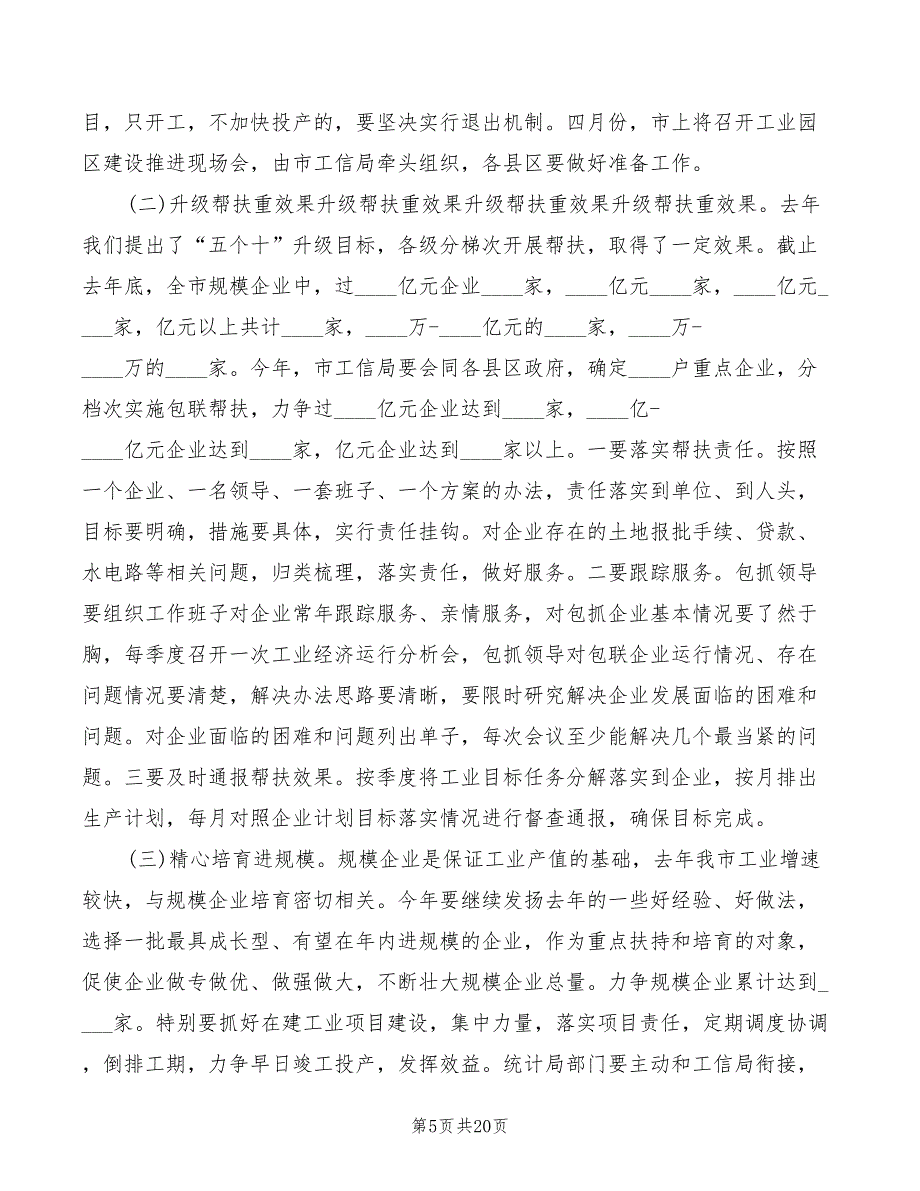 目，只开工，不加快投产的，要坚决实行退出机制。四月份，市上将召开工业园
区建设推进现场会，由市工信局牵头组织，各县区要做好准备工作。
(二)升级帮扶重效果升级帮扶重效果升级帮扶重效果升级帮扶重效果。去年
我们提出了“五个十”升级目标，各级分梯次开展帮扶，取得了一定效果。截止
去年底，全市规模企业中，过____亿元企业____家，____亿元____家，____亿元_
___家，亿元以上共计____家，____万-____亿元的____家，____万-
____万的____家。今年，市工信局要会同各县区政府，确定____户重点企业，分
档次实施包联帮扶，力争过____亿元企业达到____家，____亿-
____亿元企业达到____家，亿元企业达到____家以上。一要落实帮扶责任。按照
一个企业、一名领导、一套班子、一个方案的办法，责任落实到单位、到人头，
目标要明确，措施要具体，实行责任挂钩。对企业存在的土地报批手续、贷款、
水电路等相关问题，归类梳理，落实责任，做好服务。二要跟踪服务。包抓领导
要组织工作班子对企业常年跟踪服务、亲情服务，对包抓企业基本情况要了然于
胸，每季度召开一次工业经济运行分析会，包抓领导对包联企业运行情况、存在
问题情况要清楚，解决办法思路要清晰，要限时研究解决企业发展面临的困难和
问题。对企业面临的困难和问题列出单子，每次会议至少能解决几个最当紧的问
题。三要及时通报帮扶效果。按季度将工业目标任务分解落实到企业，按月排出
生产计划，每月对照企业计划目标落实情况进行督查通报，确保目标完成。
(三)精心培育进规模。规模企业是保证工业产值的基础，去年我市工业增速
较快，与规模企业培育密切相关。今年要继续发扬去年的一些好经验、好做法，
选择一批最具成长型、有望在年内进规模的企业，作为重点扶持和培育的对象，
促使企业做专做优、做强做大，不断壮大规模企业总量。力争规模企业累计达到_
___家。特别要抓好在建工业项目建设，集中力量，落实项目责任，定期调度协调
，倒排工期，力争早日竣工投产，发挥效益。统计局部门要主动和工信局衔接，
第5页共20页